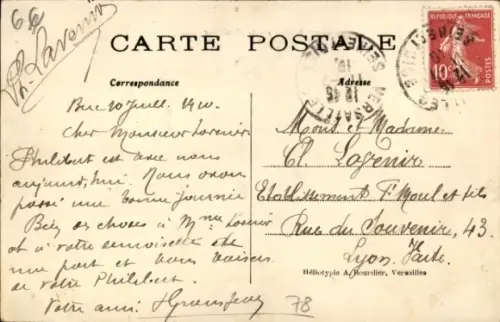 66
Ph. Lavenir
CARTE POSTALE
RÉPUBLIQUE FRANÇAISE
10
POSTES
VERSAILLES
12 45
Correspondance
Adresse
Buc 20 Juill. 1910.
Cher Monsieur Lavenir
Philibert est avec nous
aujourd'hui. Nous avons
passé une bonne journée
Bien des choses à Mme Lavenir
et à votre demoiselle
une part et bons baisers
de votre Philibert.
Votre ami
Mons et Madame
Cl. Lavenir
Etablissement F. Moul et fils
Rue du Souvenir, 43.
Lyon. Vaise.
Hélictypie A. Bourdier, Versailles
78